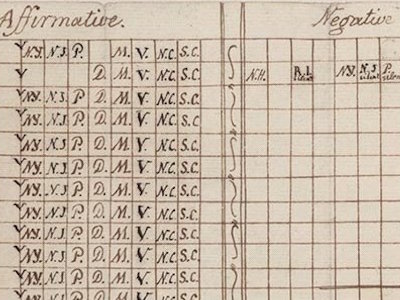 Affirmative. Negative
Y NY. N.J. P. M. V. N.C. S.C.
Y D. M. V. N.C. S.C. N.H. R.I. silent NY. N.J. silent P. silen
Y NY. N.J. P. D. M. V. N.C. S.C.
Y NY. N.J. P. D. M. V. N.C. S.C.
Y NY. N.J. P. D. M. V. N.C. S.C.
Y NY. N.J. P. D. M. V. N.C. S.C.
Y NY. N.J. P. D. M. V. N.C. S.C.
Y NY. N.J. P. D. M. V. N.C. S.C.
Y NY. N.J. P. D. M. V. N.C. S.C.
Y NY. N.J. P. D. M. V. N.C. S.C.
Y NY. N.J. P. D. M. V. N.C. S.C.